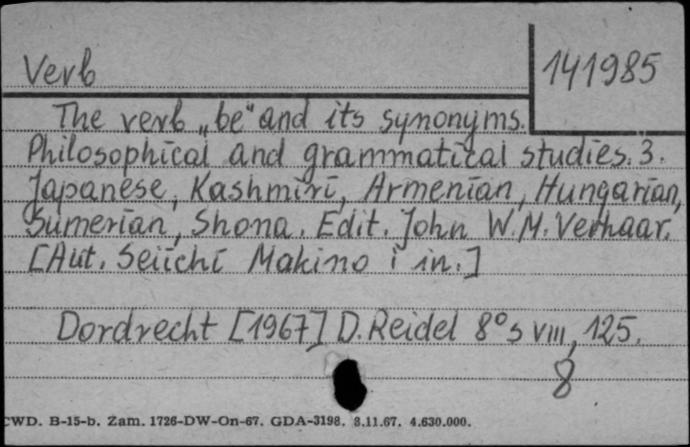 Verb
141985
The verb „be" and its synonyms.
Philosophical and grammatical studies. 3.
Japanese, Kashmiri, Armenian, Hungarian,
Sumerian, Shona. Edit. John W.M. Verhaar.
[Aut. Seiichi Makino i in.]
Dordrecht [1967] D. Reidel 8° s VIII, 125.
8
CWD. B-15-b. Zam. 1726-DW-On-67. GDA-3198. 8.11.67. 4.630.000.